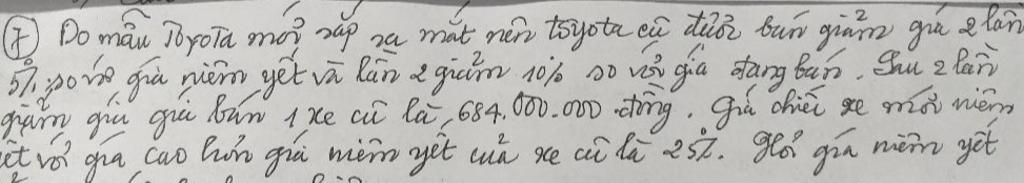 ⑦ Do mẫu Toyota mới sắp ra mắt nên toyota cũ được bán giảm giá 2 lần
5% so với giá niêm yết và lần 2 giảm 10% so với giá đang bán. Sau 2 lần
giảm giá giá bán 1 xe cũ là 684.000.000 đồng. Giá chiếc xe mới niêm
yết với giá cao hơn giá niêm yết của xe cũ là 25%. Hỏi giá niêm yết